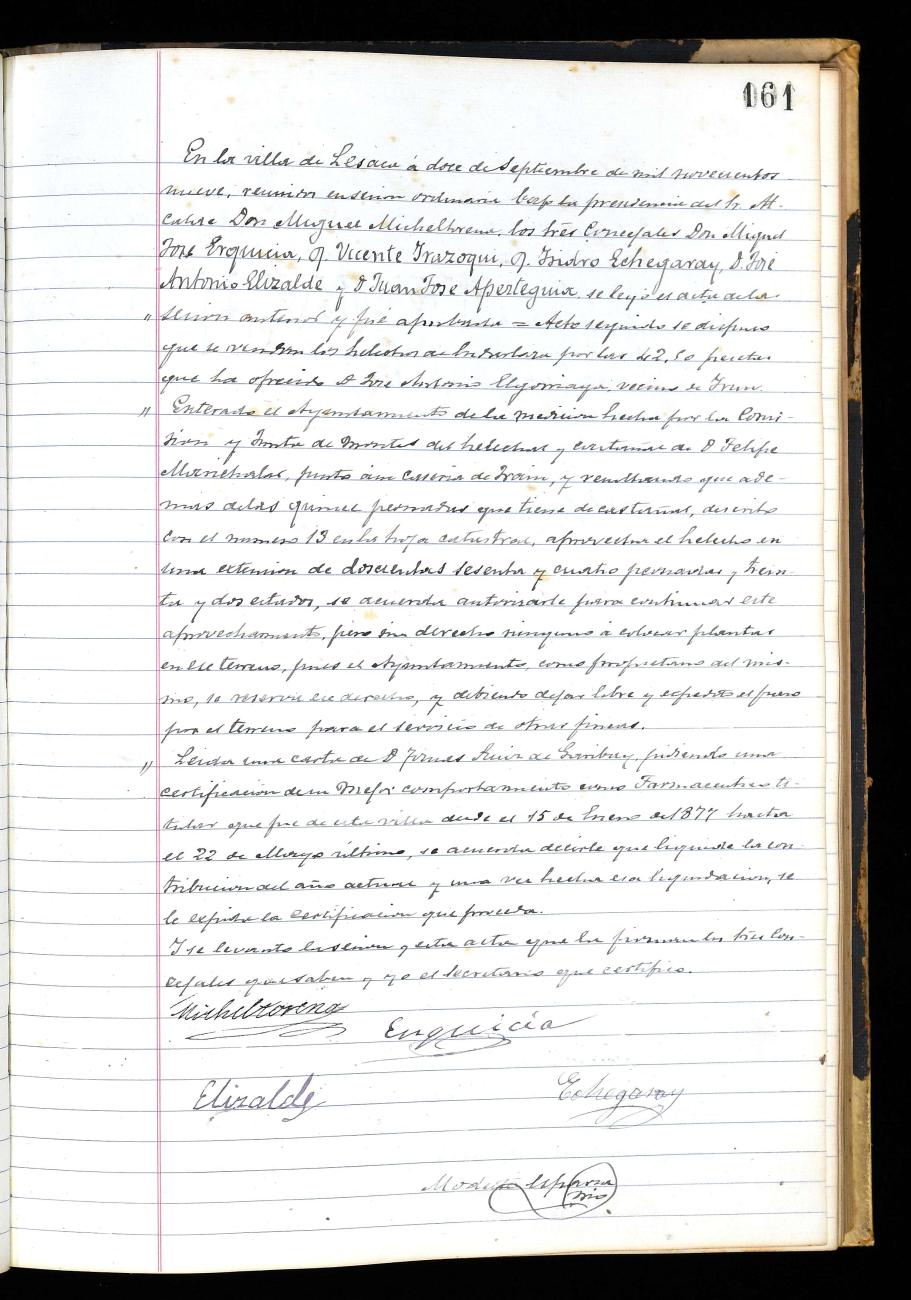 161
En la villa de Lesaca á doce de Septiembre de mil novecientos
nueve, reunidos en sesion ordinaria bajo la presidencia del Sr. Al-
calde Don Miguel Micheltorena, los tres Concejales Don Miguel
José Erquicia, D. Vicente Irazoqui, D. Isidro Echegaray, D. José
Antonio Elizalde y D Juan José Apesteguia se leyó el acta de la
" sesion anterior y fué aprobada = Acto seguido se dispuso
que se vendan los helechos de Endarlaza por las 42,50 pesetas
que ha ofrecido D José Antonio vecino de Irun.
" Enterado el Ayuntamiento de la medicion hecha por la Comi-
sion y Junta de Montes del helechal y castañal de D Felipe
Marichalar, junto á su caseria de Frain, y resultando que ade-
mas de las quince peonadas que tiene de castañal, descrito
con el numero 13 en la hoja catastral, aprovecha el helecho en
una extension de doscientas sesenta y cuatro peonadas y trein-
ta y dos estados, se acuerda autorizarle para continuar este
aprovechamiento, pero sin derecho ninguno á colocar plantas
en ese terreno, pues el Ayuntamiento, como propietario del mis-
mo, se reserva ese derecho, y debiendo dejar libre y espedito el paso
por el terreno para el servicio de otras fincas.
" Leida una carta de D Tomas Ruiz de Garibay, pidiendo una
certificacion de su mejor comportamiento como Farmaceutico ti-
tular que fue de esta villa desde el 15 de Enero de 1877 hasta
el 22 de Mayo último, se acuerda decirle que liquide la con-
tribucion del año actual y una vez hecha esa liquidacion, se
le expida la certificacion que proceda.
Y se levantó la sesion y esta acta que la firman los tres Con-
cejales que saben y yo el Secretario que certifico.
Micheltorena
Erquicia
Elizalde
Echegaray
Modesto Esparza
Srio